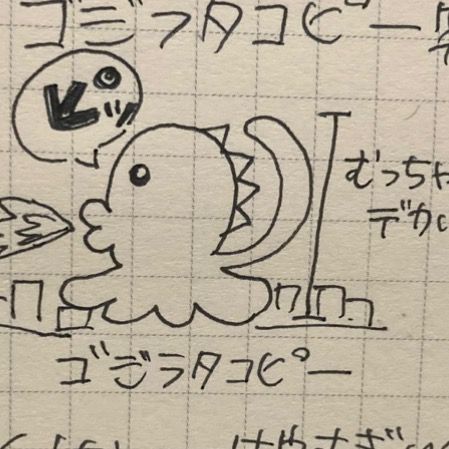 ゴジラタコピー
むっちゃ
デカい
ゴジラタコピー
はやさ